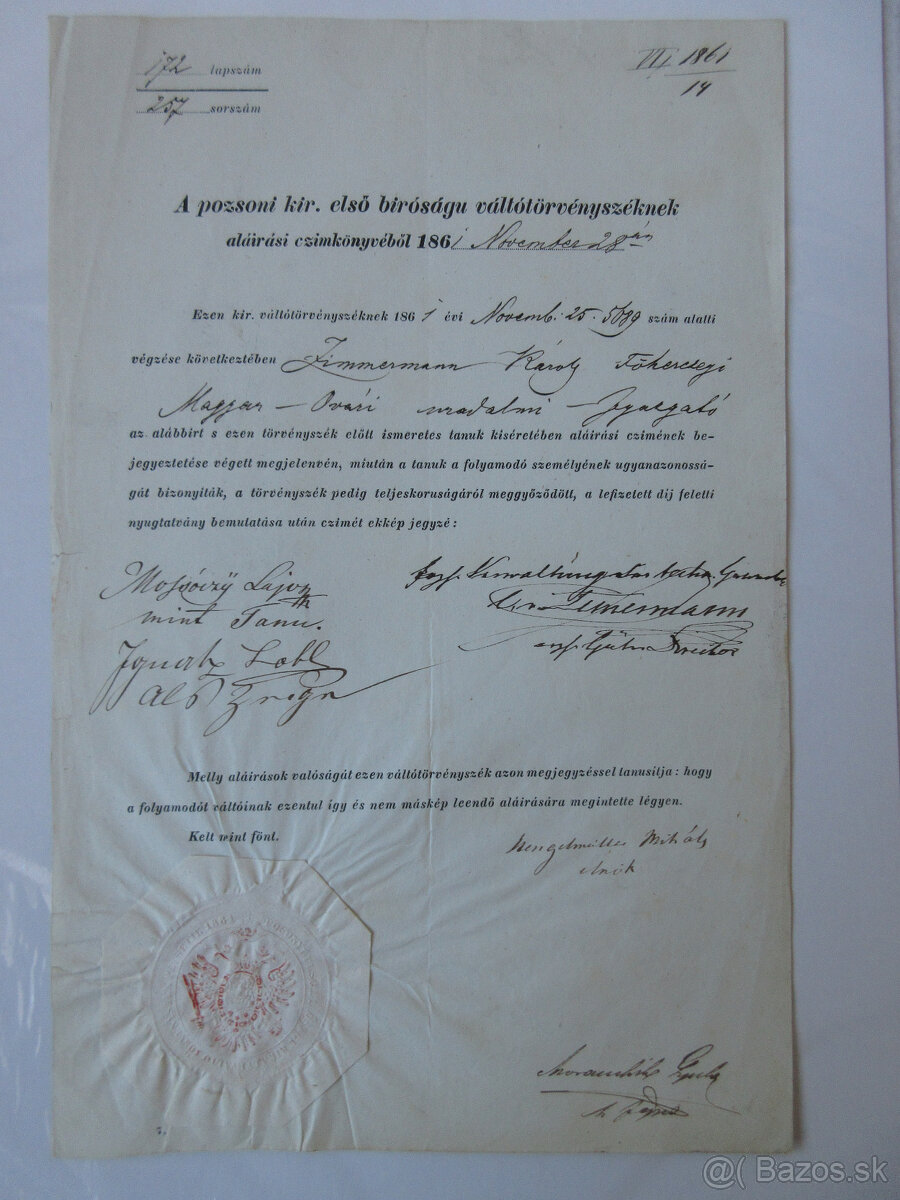 172 lapszám
257 sorszám
VII 1861
14
A pozsoni kir. első biróságu váltótörvényszéknek
aláirási czimkönyvéből 1861 November 28án
Ezen kir. váltótörvényszéknek 1861 évi Novemb: 25. 5689 szám alatti
végzése következtében Zimmermann Károly Főherczegi
Magyar-Ovári uradalmi-Igazgató
az alábbirt s ezen törvényszék előtt ismeretes tanuk kiséretében aláirási czimének be-
jegyeztetése végett megjelenvén, miután a tanuk a folyamodó személyének ugyanazonossá-
gát bizonyiták, a törvényszék pedig teljeskoruságáról meggyőződött, a lefizetett dij feletti
nyugtatvány bemutatása után czimét ekkép jegyzé:
Mossóczÿ Lajos
mint Tanu.
Ignatz
als Zeuge
Melly aláirások valóságát ezen váltótörvényszék azon megjegyzéssel tanusitja: hogy
a folyamodót váltóinak ezentul így és nem máskép leendő aláirására megintette légyen.
Kelt mint fönt.
Hengelmüller Mihály
elnök
7.
@( Bazos.sk